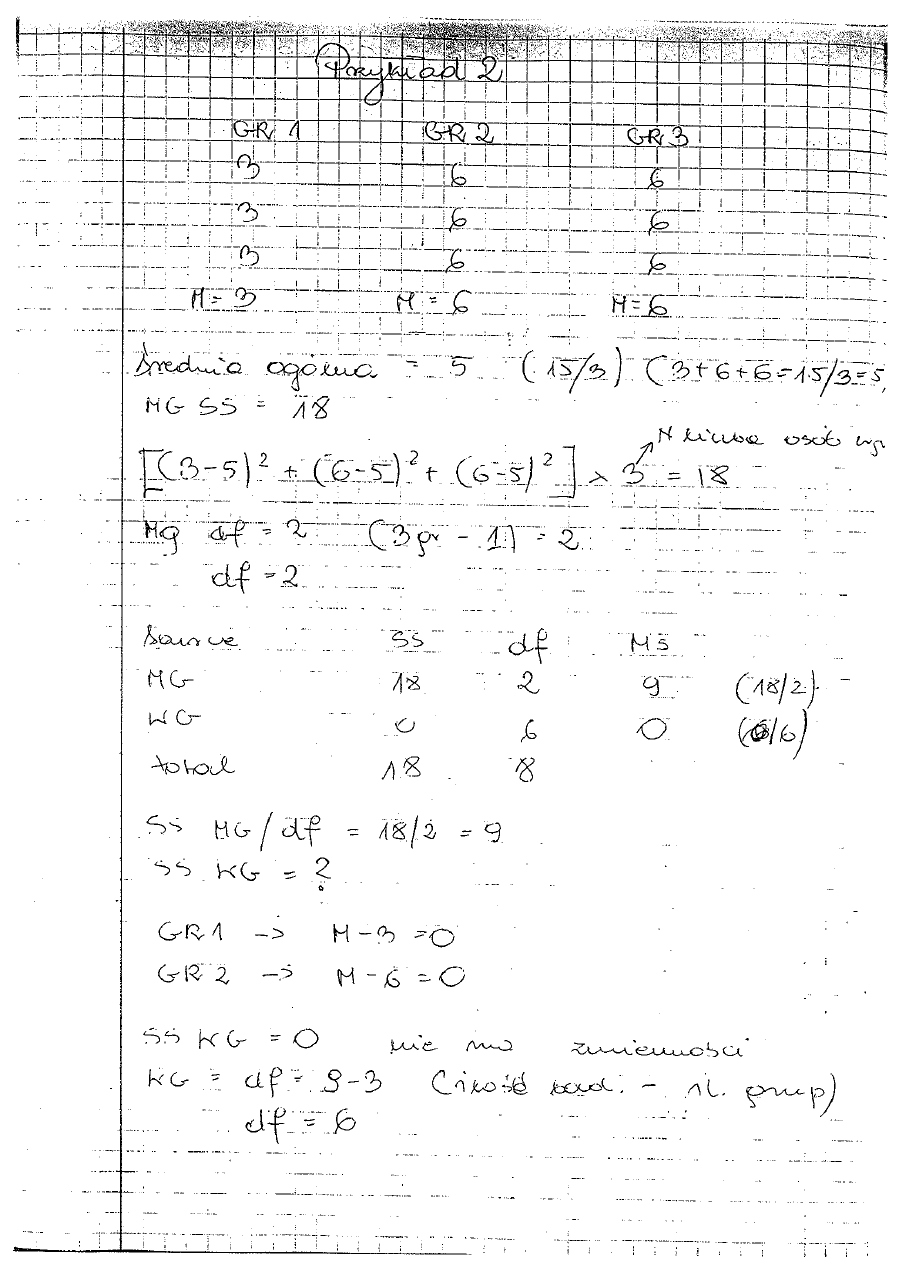 Przykład 2
GR 1 GR 2 GR 3
3 6 6
3 6 6
3 6 6
M = 3 M = 6 M = 6
Średnia ogólna = 5 (15/3) (3+6+6=15/3=5
MG SS = 18
N liczba osób w gr
[(3-5)² + (6-5)² + (6-5)²] × 3 = 18
Mg df = 2 (3 gr - 1) = 2
df = 2
Source SS df MS
MG 18 2 9 (18/2)
WG 0 6 0 (0/6)
total 18 8
SS MG/df = 18/2 = 9
SS WG = ?
GR 1 -> M - 3 = 0
GR 2 -> M - 6 = 0
SS WG = 0 nie ma zmienności
WG = df = 9-3 (ilość bad. - il. grup)
df = 6